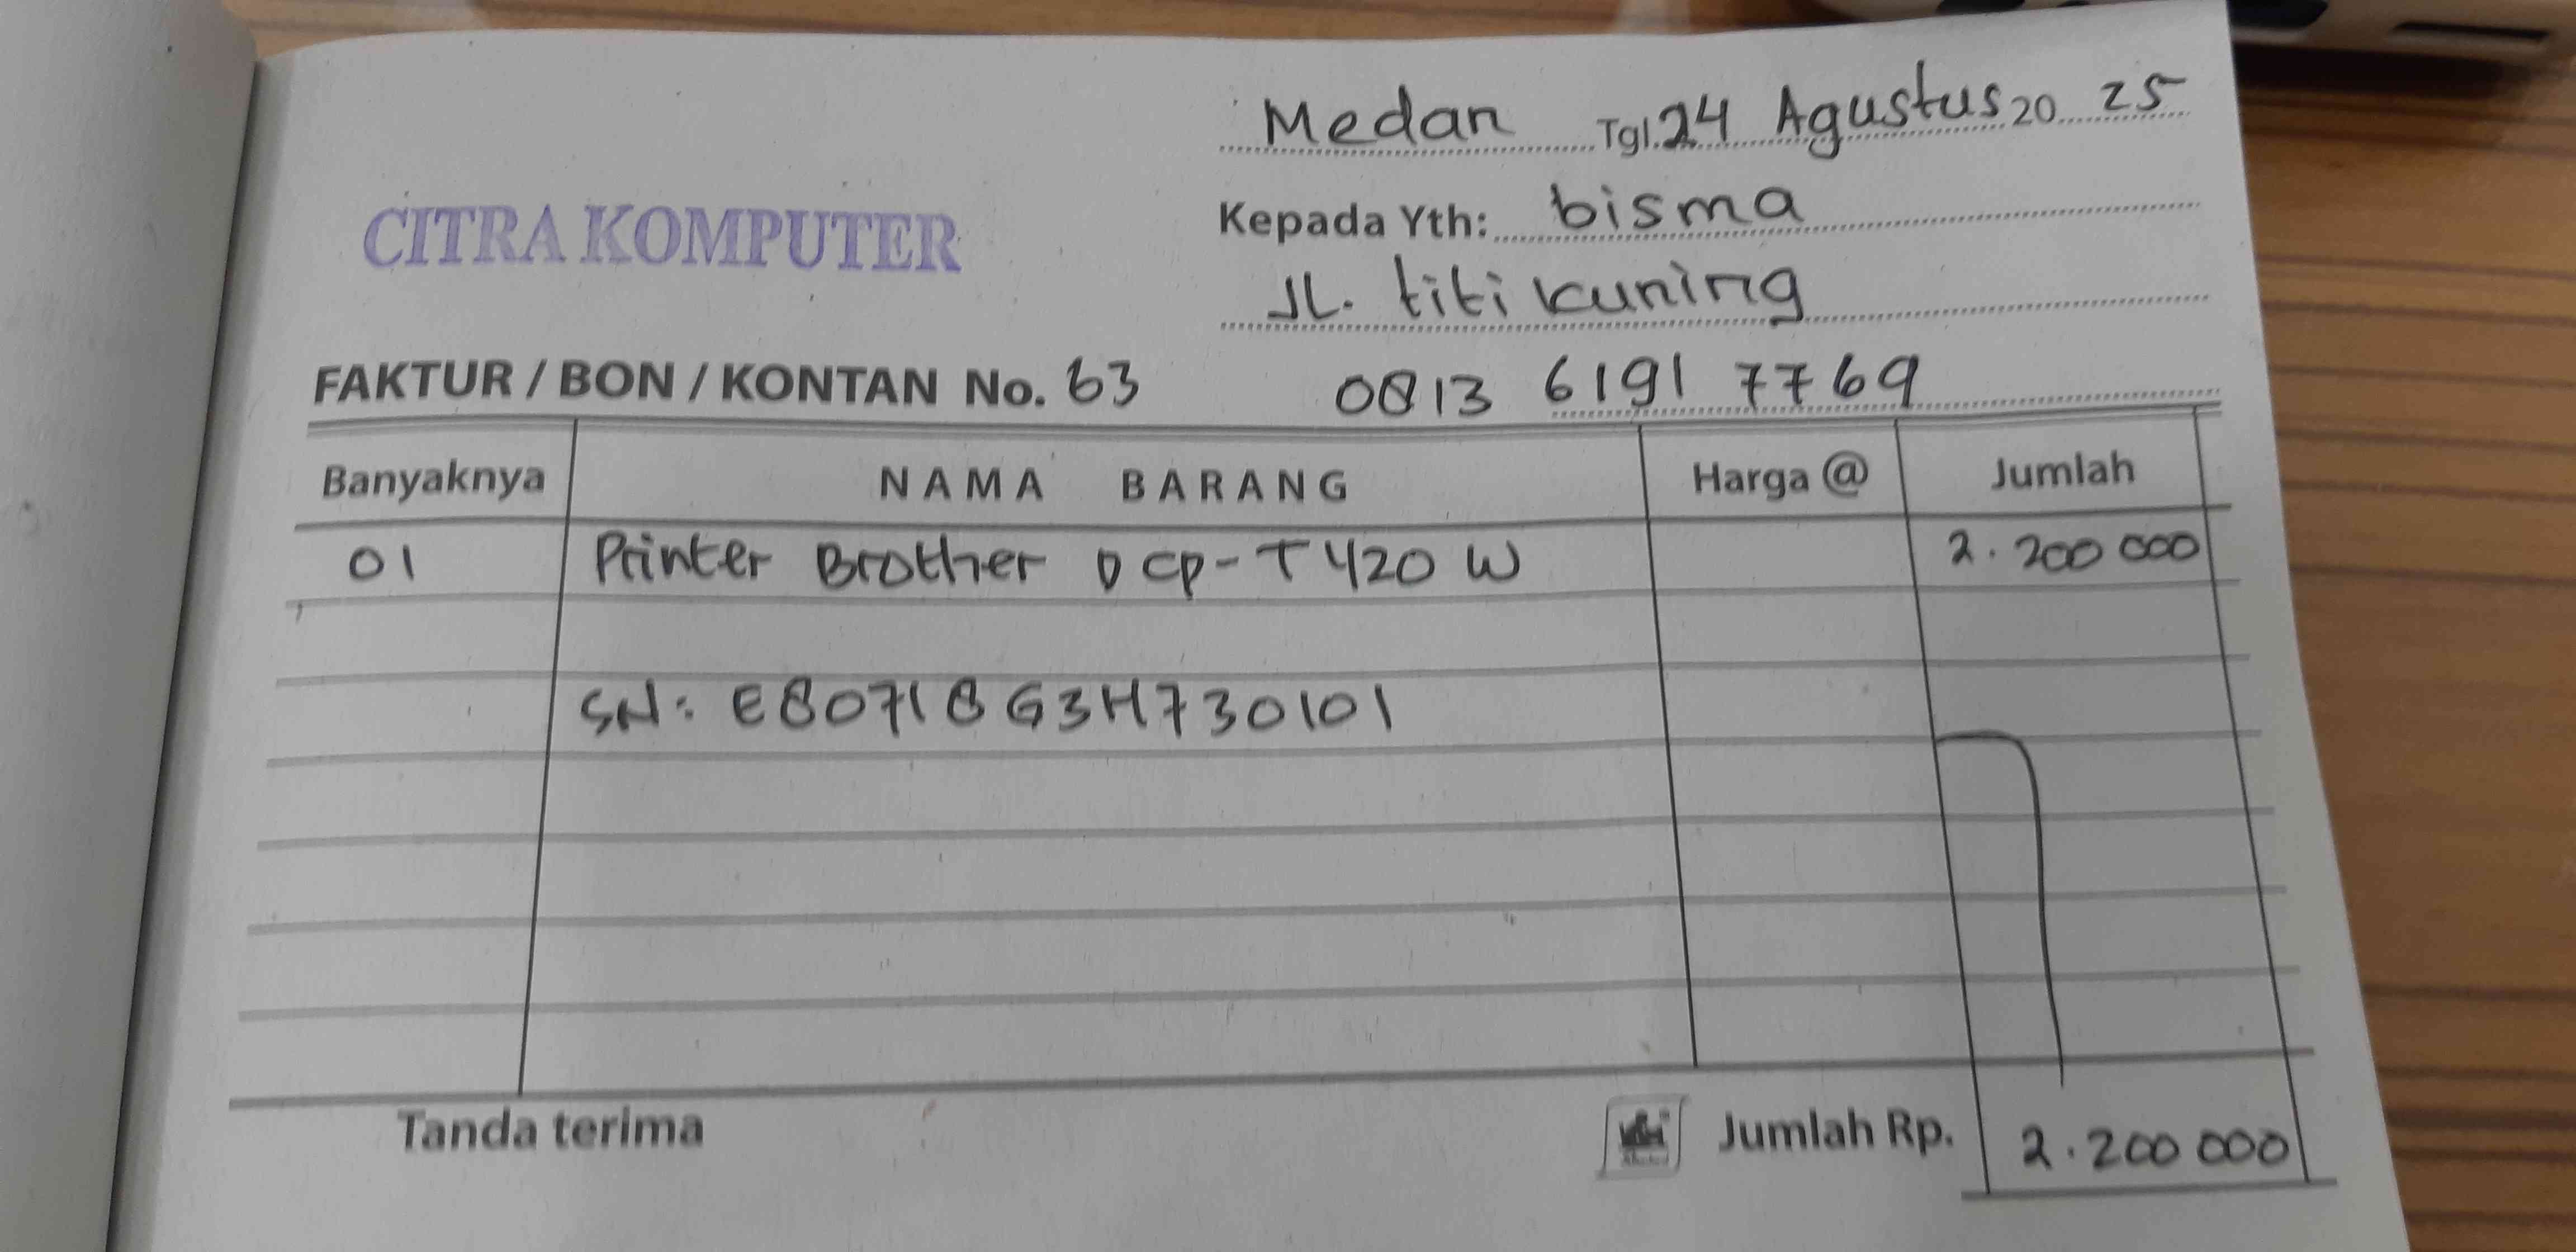 Medan Tgl. 24 Agustus 20 25
CITRA KOMPUTER
Kepada Yth: bisma
JL. titi kuning
FAKTUR / BON / KONTAN No. 63 0813 6191 7769
Banyaknya NAMA BARANG Harga @ Jumlah
01 Printer Brother DCP-T420 W 2.200 000
SN: E80718G3H730101
Tanda terima Jumlah Rp. 2.200 000